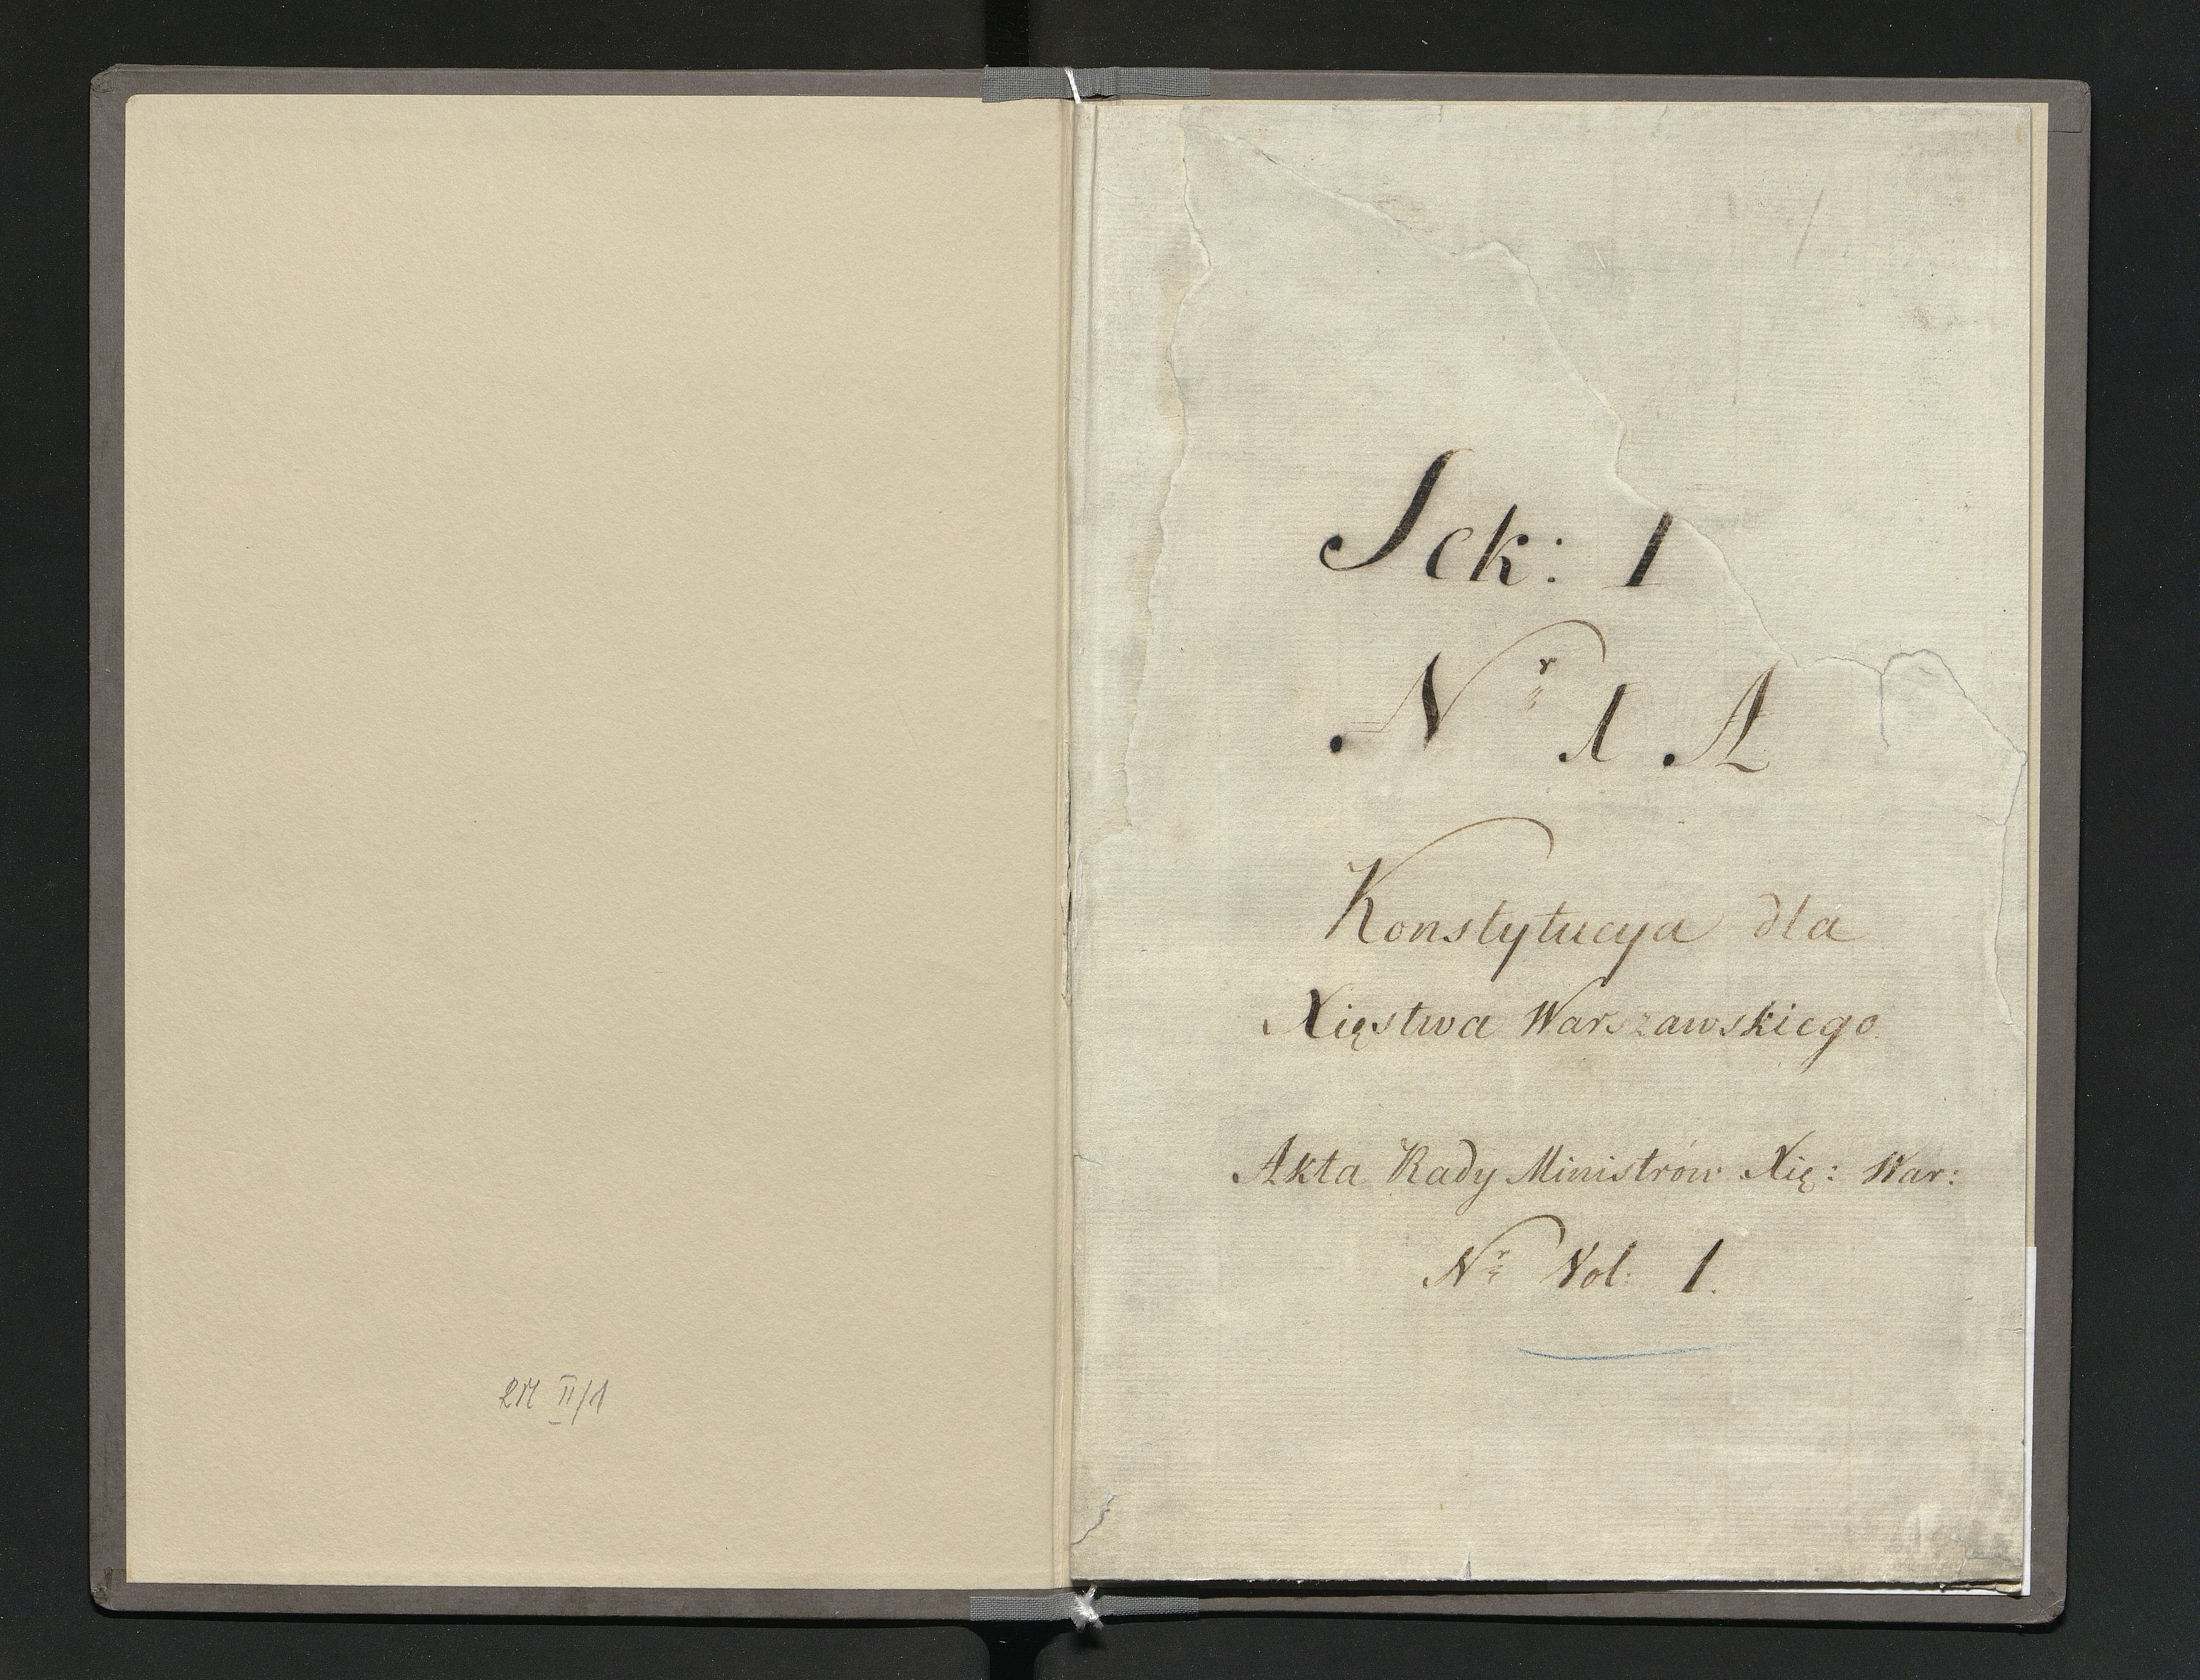 Sek: 1
Nr 1 A
Konstytucya dla
Xięstwa Warszawskiego
Akta Rady Ministrów Xię: War:
Nr Vol: 1.
II/1